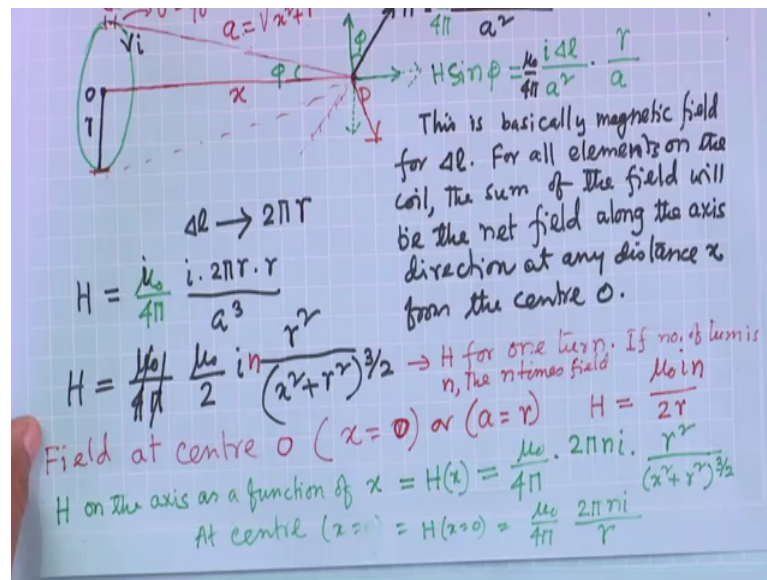 a = √x²+r
i
φ
a²
H sin φ = μ₀/4π iΔl/a² · r/a
φ
o
x
P
r
This is basically magnetic field
for Δl. For all elements on the
coil, the sum of the field will
be the net field along the axis
direction at any distance x
from the centre O.
Δl → 2πr
H = μ₀/4π i. 2πr. r/a³
H = μ₀/4π μ₀/2 in r²/(x²+r²)^3/2 → H for one turn. If no. of turn is
n, the n times field
H = μ₀in/2r
Field at centre O (x=0) or (a=r)
H on the axis as a function of x = H(x) = μ₀/4π · 2πni. r²/(x²+r²)^3/2
At centre (x=0) = H(x=0) = μ₀/4π 2πni/r